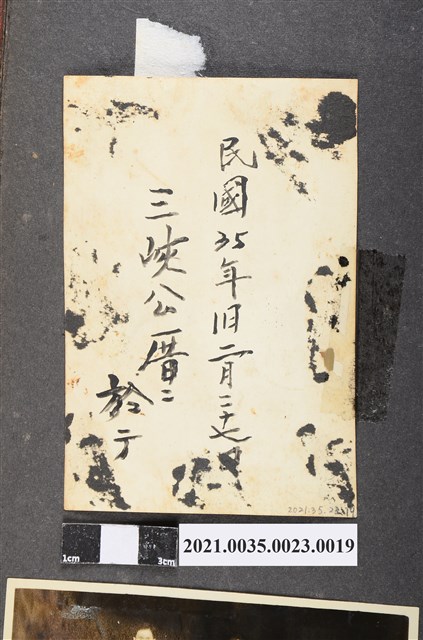 民國35年旧二月二十七日
三峽公厝ニ
於テ
2021.35.23.19
1cm
3cm
2021.0035.0023.0019